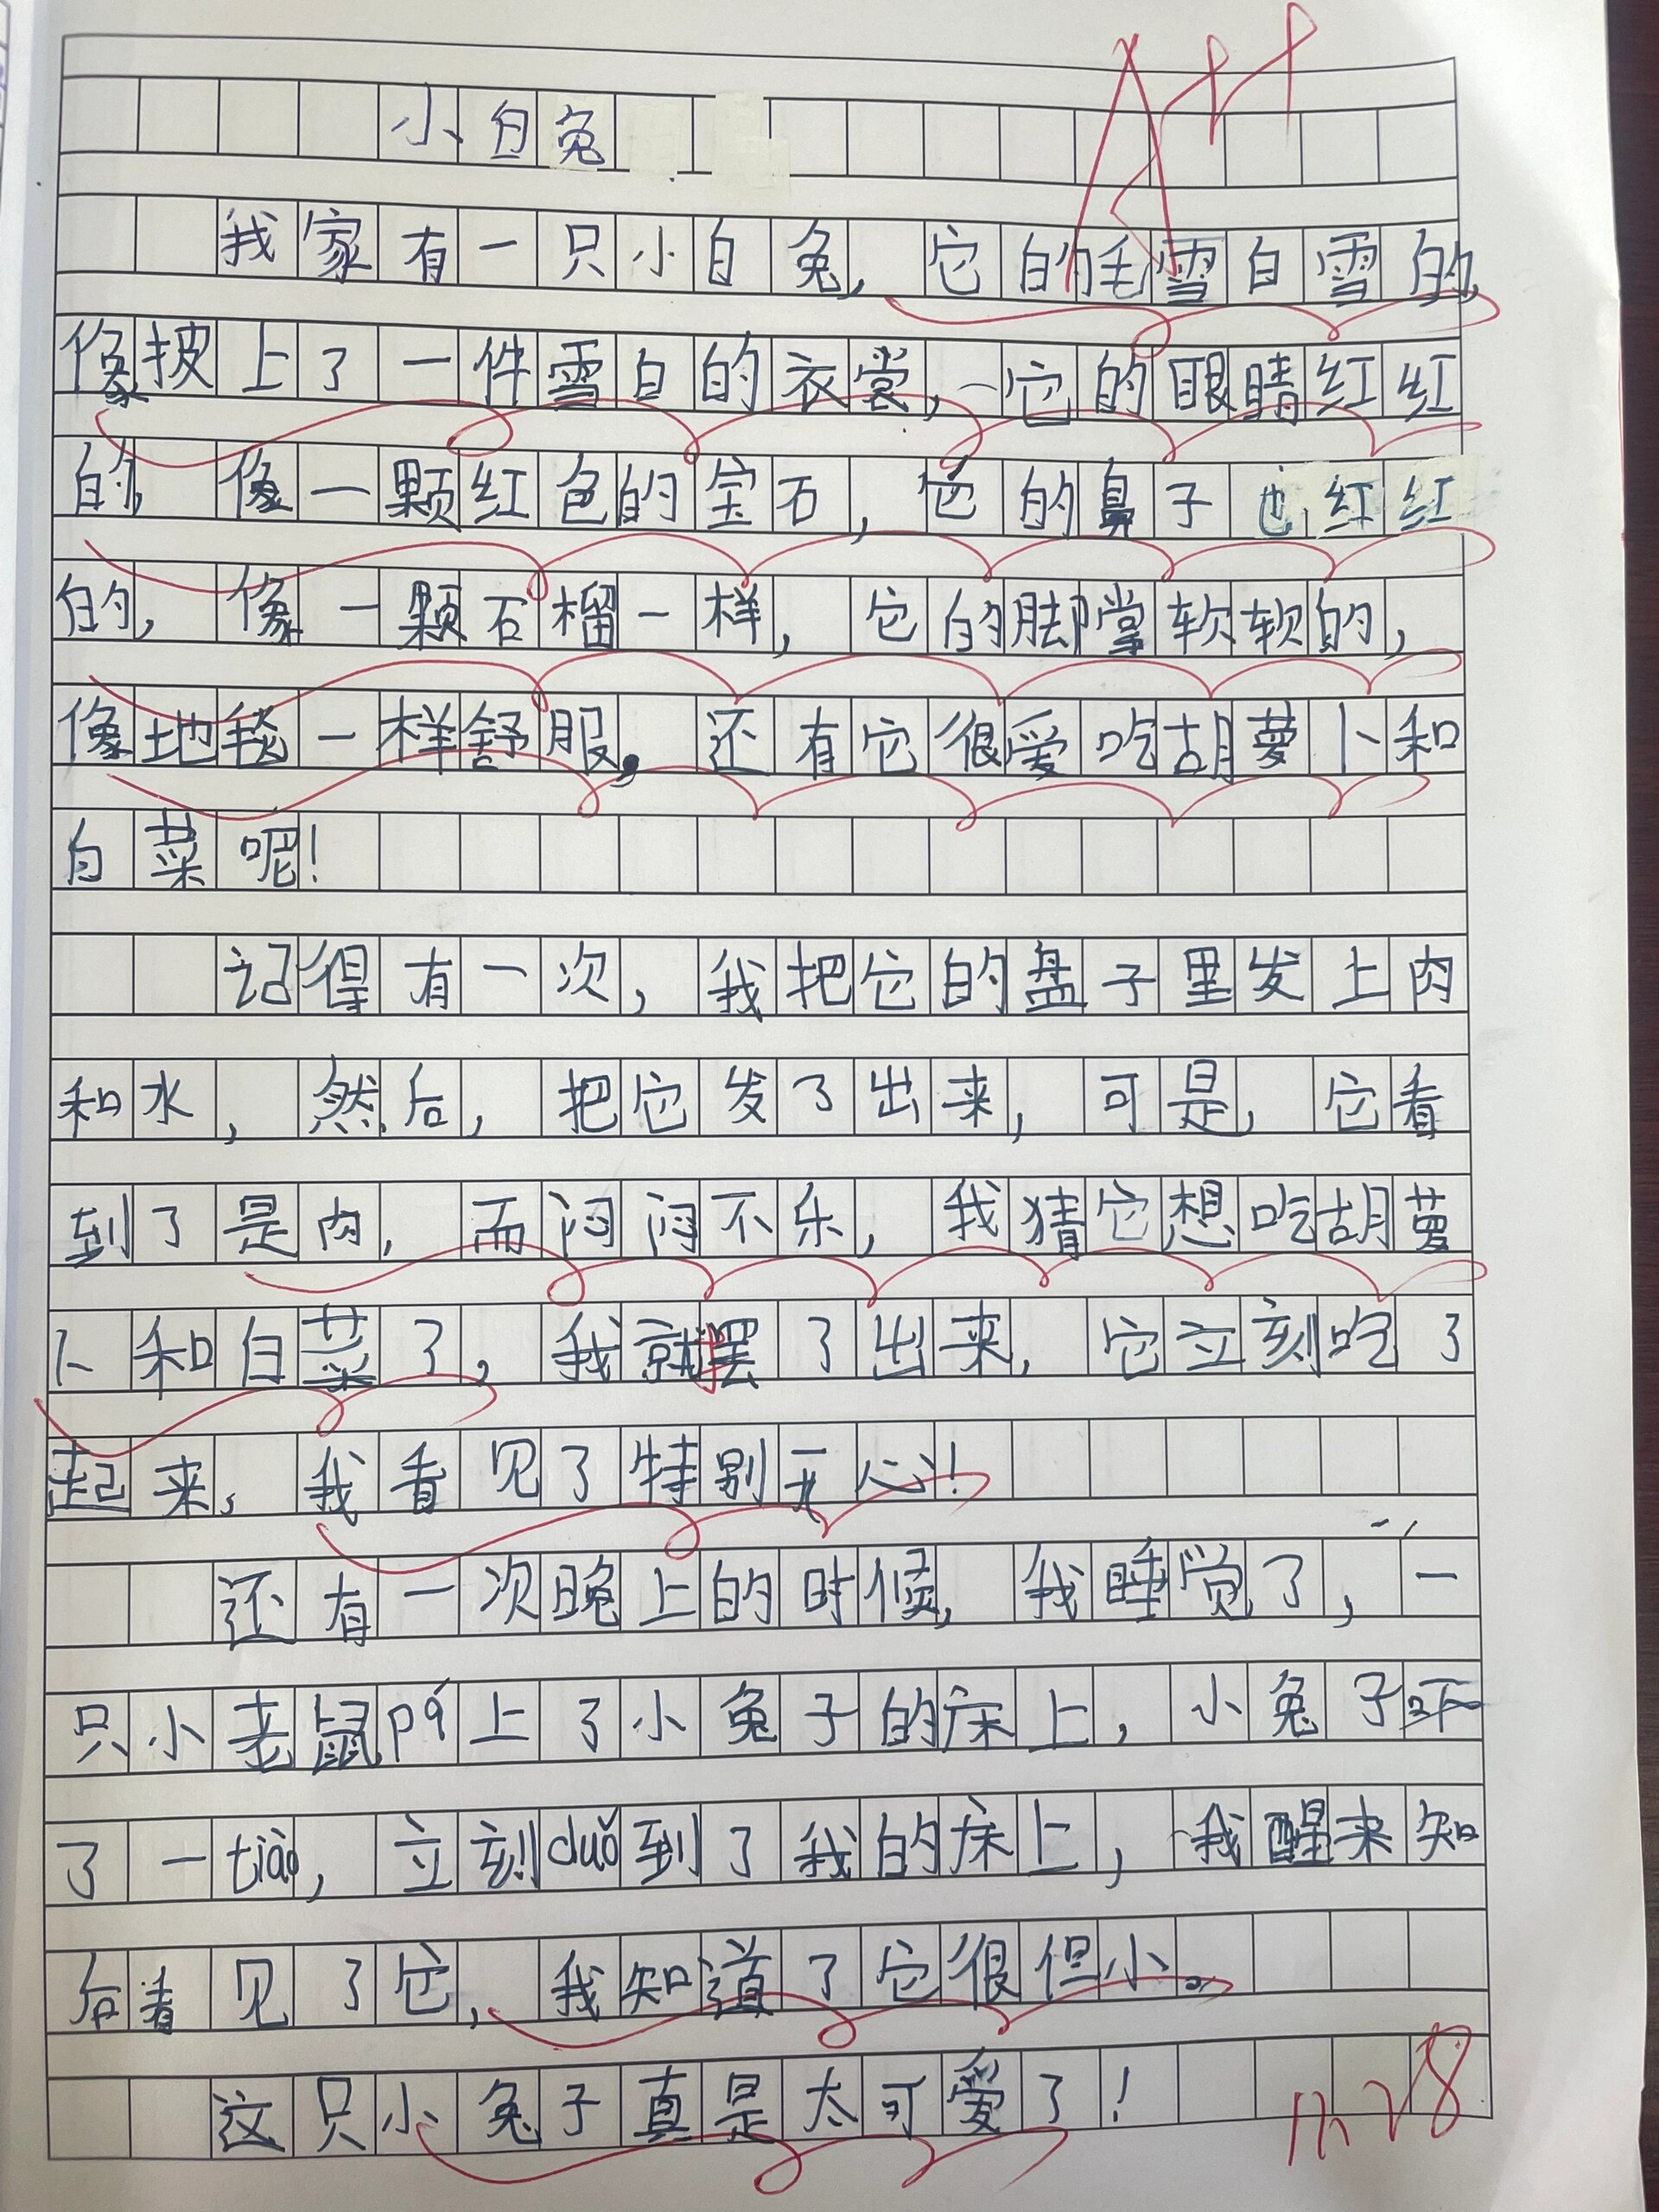 A++
小白兔
我家有一只小白兔,它的毛雪白雪的,
像披上了一件雪白的衣裳,它的眼睛红红
的,像一颗红色的宝石,它的鼻子也红红
的,像一颗石榴一样,它的脚掌软软的,
像地毯一样舒服,还有它很爱吃胡萝卜和
白菜呢!
记得有一次,我把它的盘子里发上肉
和水,然后,把它发了出来,可是,它看
到了是肉,而闷闷不乐,我猜它想吃胡萝
卜和白菜了,我就摆了出来,它立刻吃了
起来,我看见了特别开心!
还有一次晚上的时候,我睡觉了,一
只小老鼠pá上了小兔子的床上,小兔子吓
了一tiào,立刻duǒ到了我的床上,我醒来知
后看见了它,我知道了它很但小。
这只小兔子真是太可爱了!
11.28